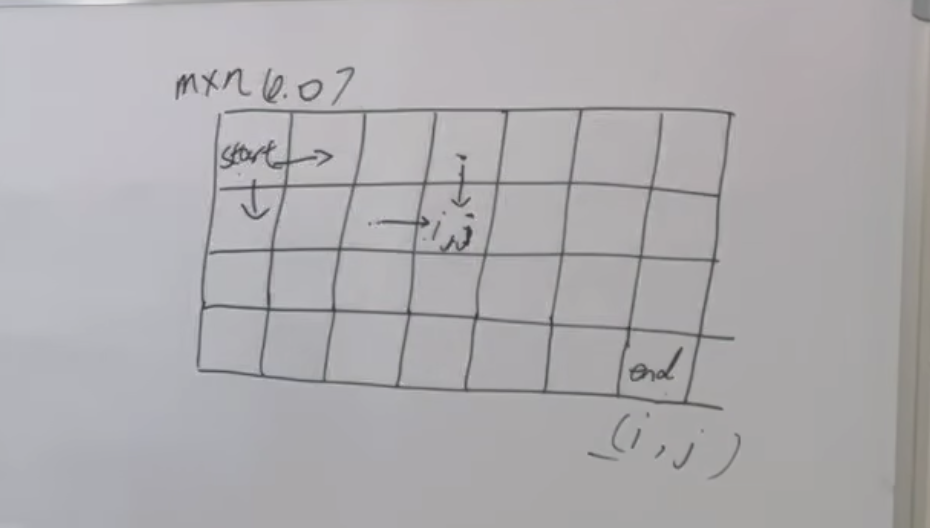 m×n (0.0)
start
i,j
end
(i,j)